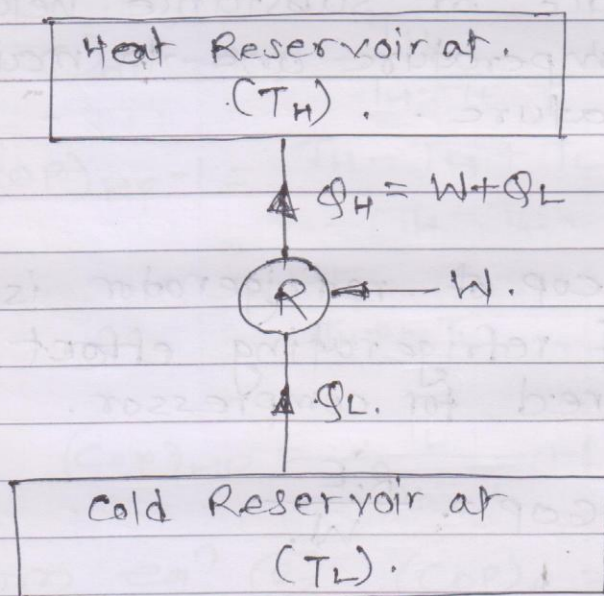 Heat Reservoir at.
(TH).
QH = W+QL
R
W.
QL.
Cold Reservoir at
(TL).